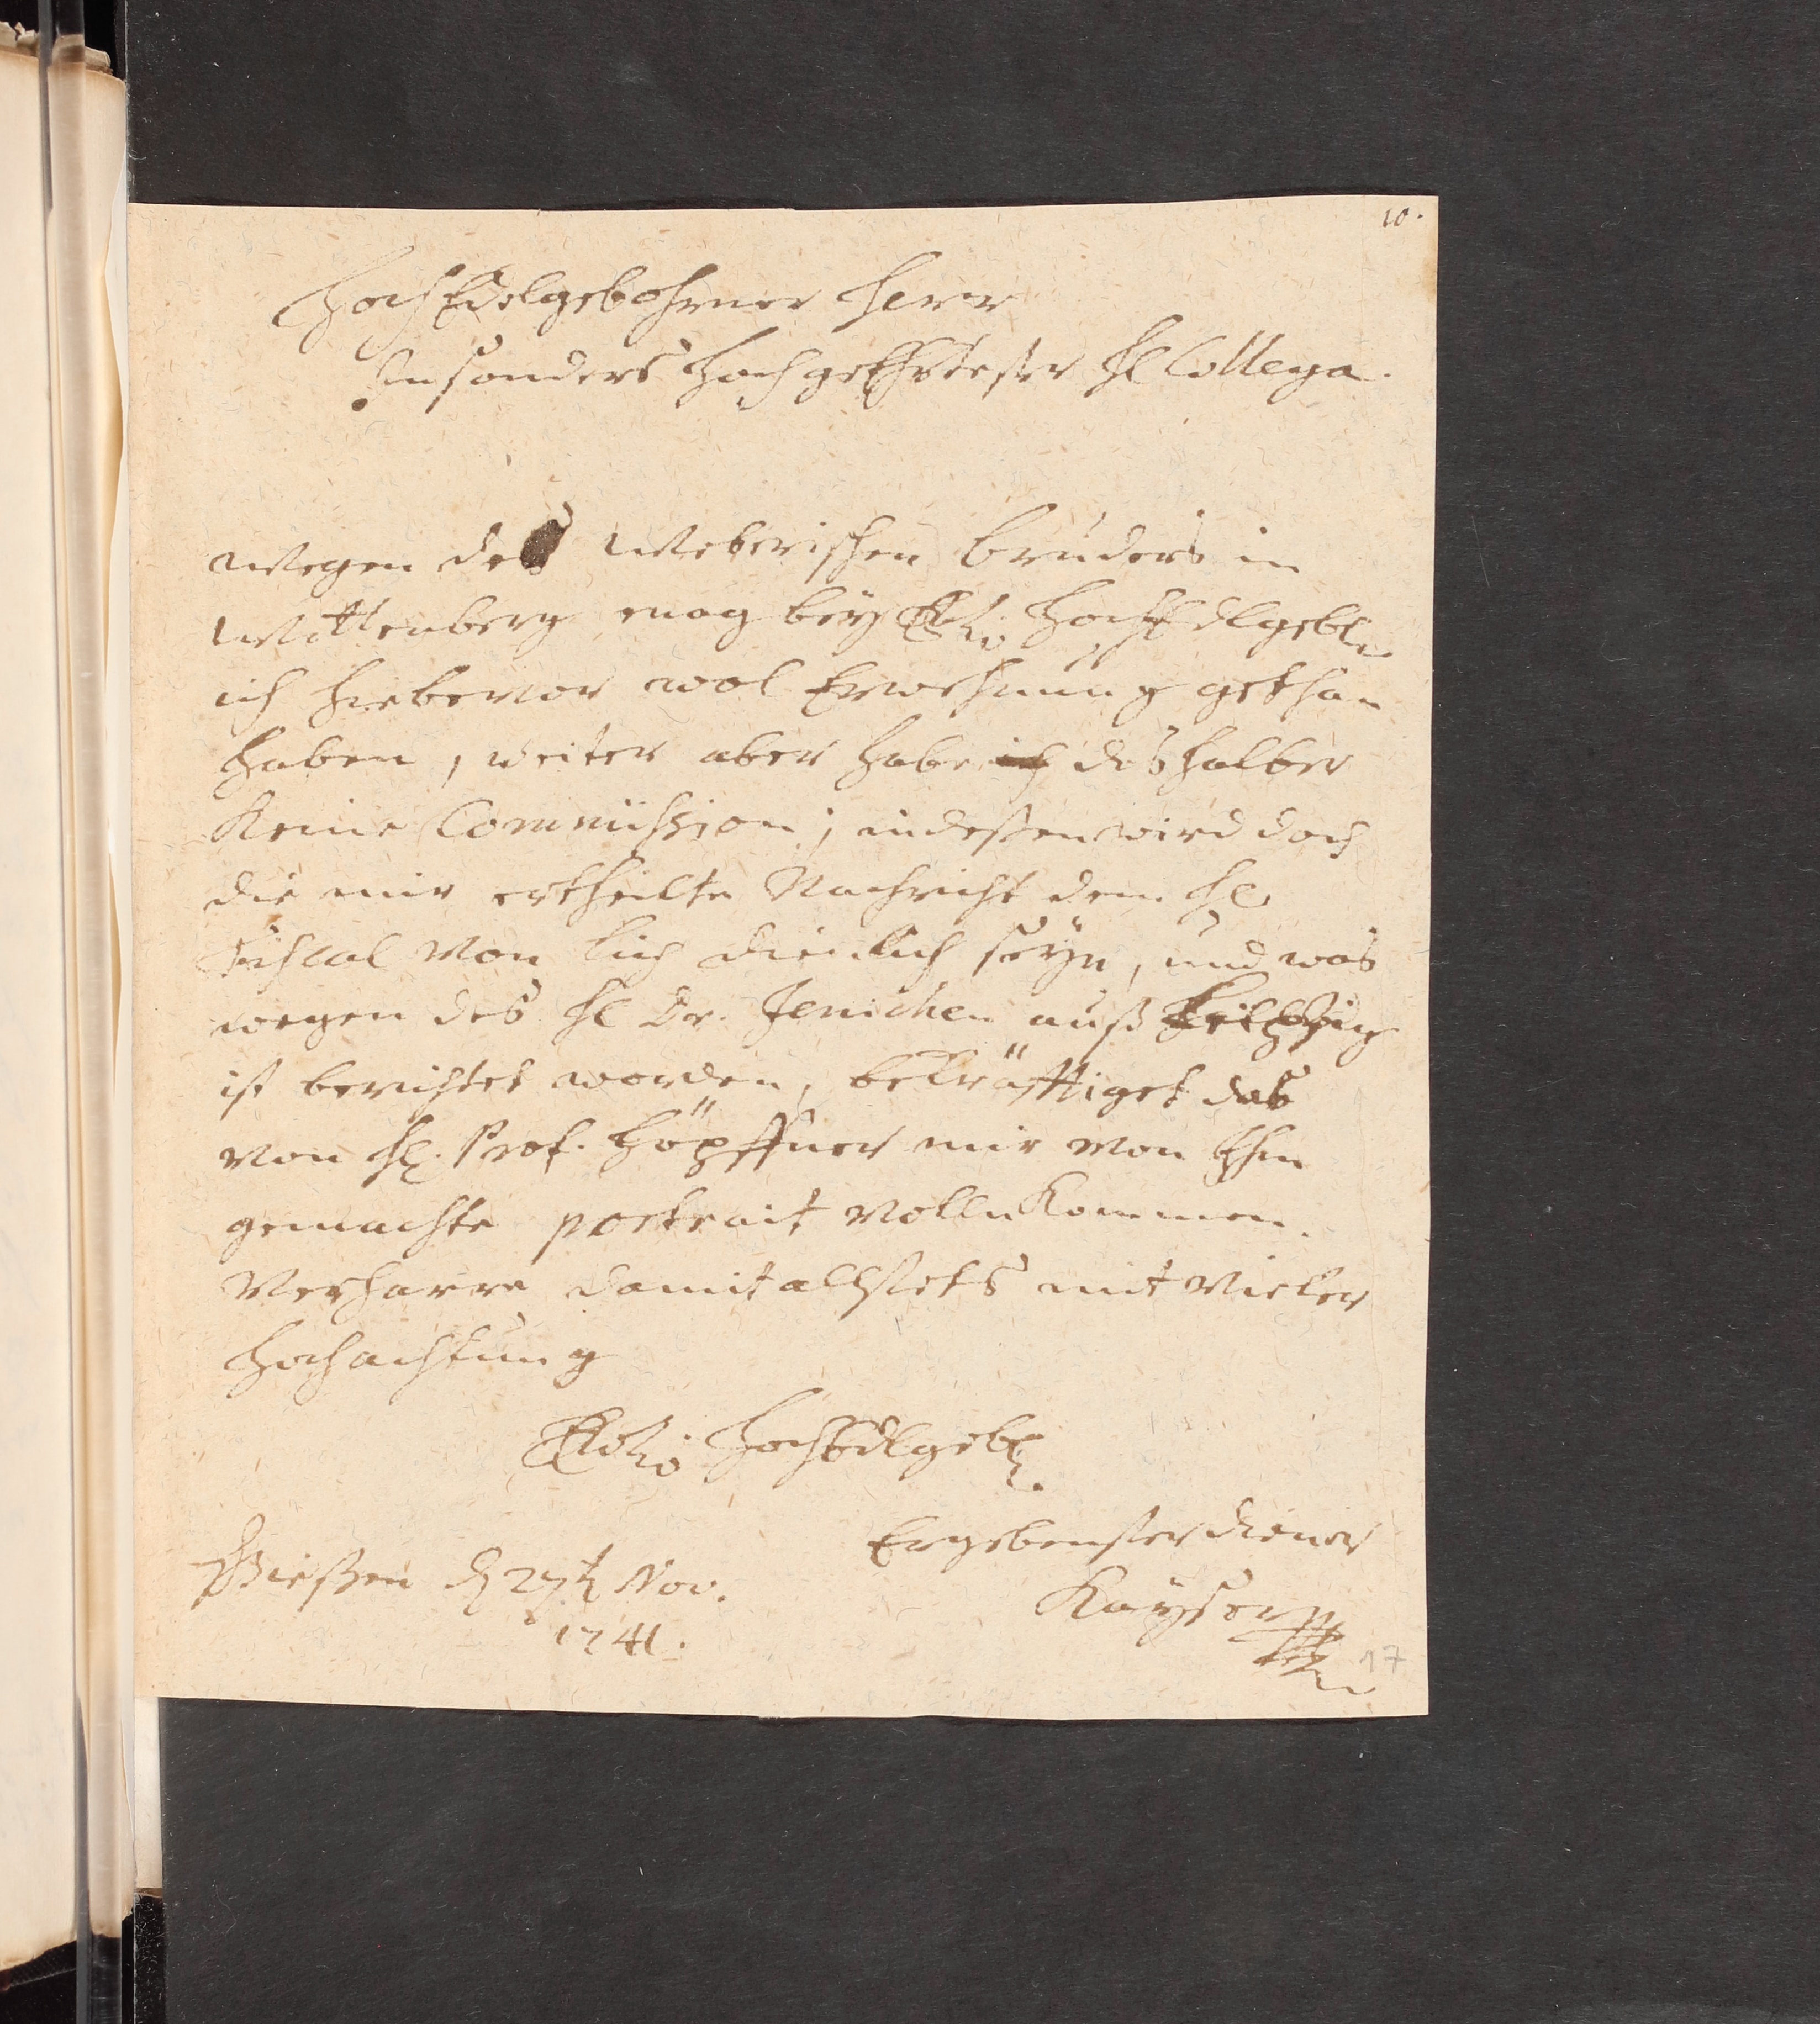 10.
HochEdelgebohrner Herr
Insonders HochgeEhrtester H Collega.
Wegen des Weberischen Bruders in
Wittenberg mag bey Ew. HochEdlgeb.
ich hiebevor wol Erwehnung gethan
haben, weiter aber habe ich deshalber
keine Commission; indeßen wird doch
die mir ertheilte Nachricht dem H
Fiscal von Lich dienlich seyn, und was
wegen des H Dr. Jenichen auß Leipzig
ist berichtet worden, bekräfftiget das
von H. Prof. Höpffner mir von Ihm
gemachte portrait vollnkommen.
Verharre damit allstets mit vieler
Hochachtung
Ew. HochEdlgeb.
Ergebenster diener
Gießen d 27t Nov. Kayser
1741.
17